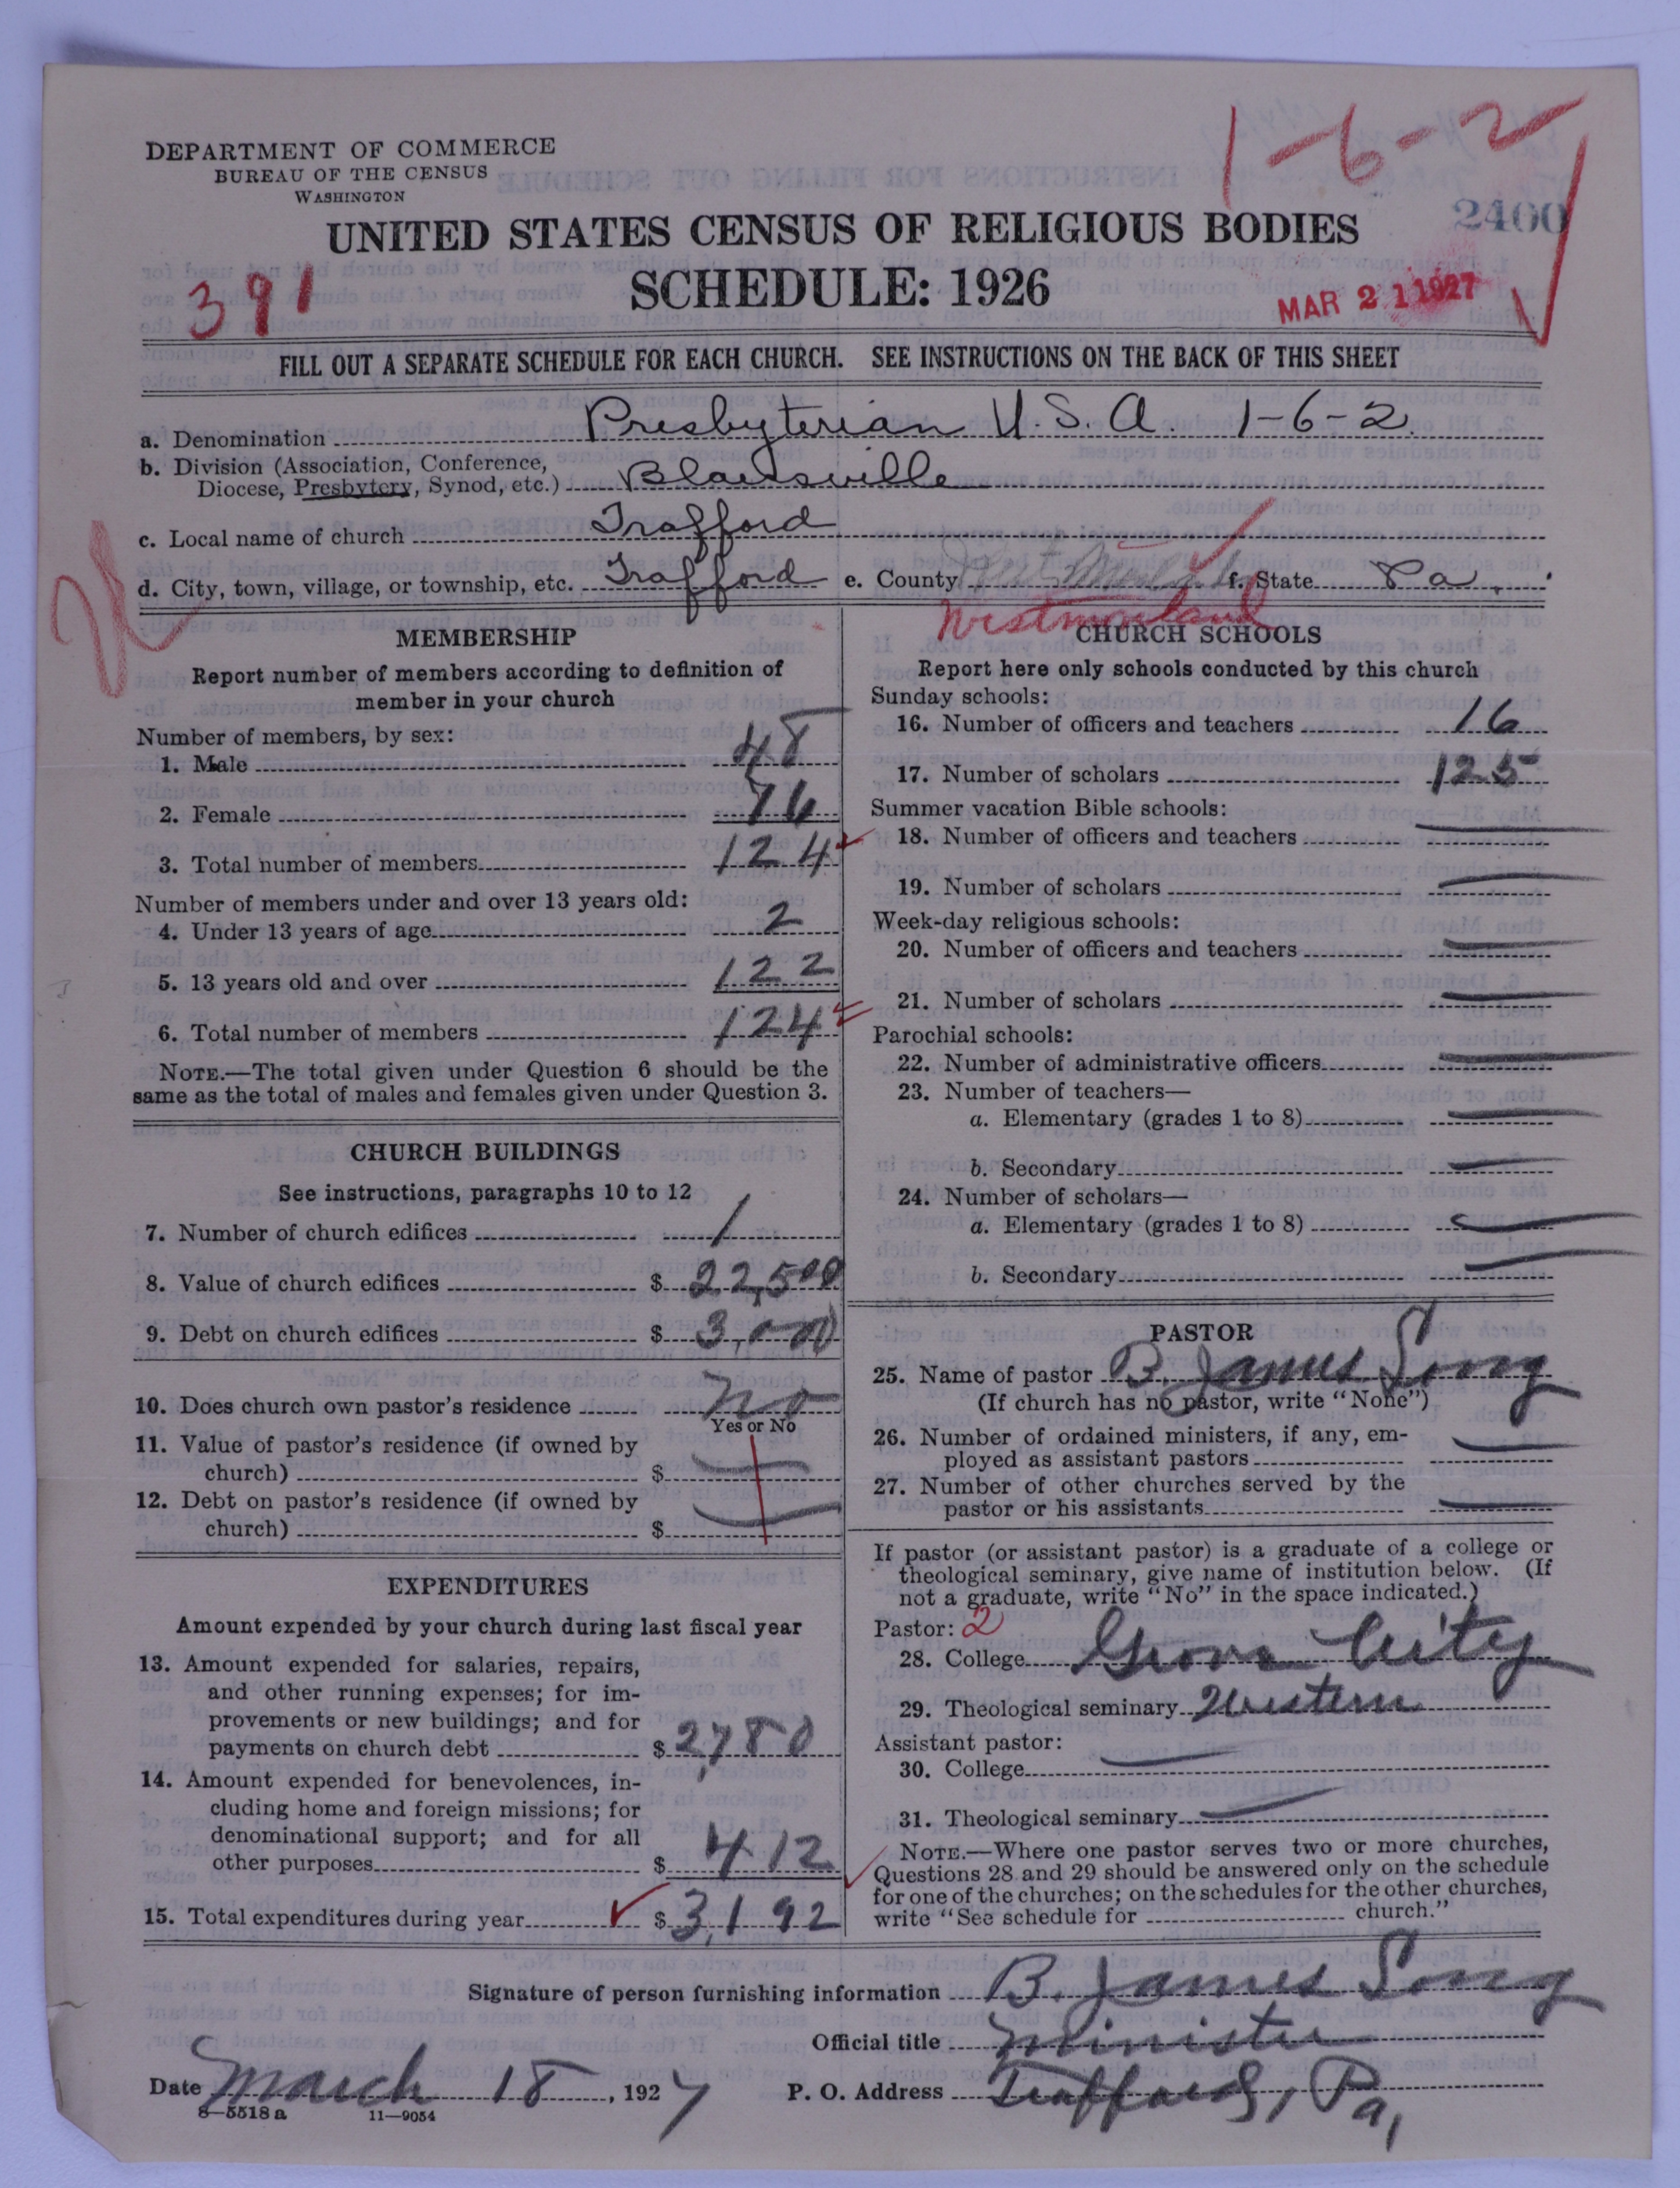 1-6-2
DEPARTMENT OF COMMERCE
BUREAU OF THE CENSUS
WASHINGTON
2400
UNITED STATES CENSUS OF RELIGIOUS BODIES
391
SCHEDULE: 1926
MAR 21 1927
FILL OUT A SEPARATE SCHEDULE FOR EACH CHURCH. SEE INSTRUCTIONS ON THE BACK OF THIS SHEET
a. Denomination Presbyterian U.S.A. 1-6-2
b. Division (Association, Conference,
Diocese, Presbytery, Synod, etc.) Blairsville
c. Local name of church Trafford
d. City, town, village, or township, etc. Trafford e. County f. State Pa.
Westmorland
MEMBERSHIP
Report number of members according to definition of
member in your church
Number of members, by sex:
1. Male 48
2. Female 76
3. Total number of members 124
Number of members under and over 13 years old:
4. Under 13 years of age 2
5. 13 years old and over 122
6. Total number of members 124
NOTE.—The total given under Question 6 should be the
same as the total of males and females given under Question 3.
CHURCH BUILDINGS
See instructions, paragraphs 10 to 12
7. Number of church edifices 1
8. Value of church edifices $ 22,500
9. Debt on church edifices $ 3,000
10. Does church own pastor's residence No
Yes or No
11. Value of pastor's residence (if owned by
church) $
12. Debt on pastor's residence (if owned by
church) $
EXPENDITURES
Amount expended by your church during last fiscal year
13. Amount expended for salaries, repairs,
and other running expenses; for im-
provements or new buildings; and for
payments on church debt $ 2,780
14. Amount expended for benevolences, in-
cluding home and foreign missions; for
denominational support; and for all
other purposes $ 412
15. Total expenditures during year $ 3,192
CHURCH SCHOOLS
Report here only schools conducted by this church
Sunday schools:
16. Number of officers and teachers 16
17. Number of scholars 125
Summer vacation Bible schools:
18. Number of officers and teachers
19. Number of scholars
Week-day religious schools:
20. Number of officers and teachers
21. Number of scholars
Parochial schools:
22. Number of administrative officers
23. Number of teachers—
a. Elementary (grades 1 to 8)
b. Secondary
24. Number of scholars—
a. Elementary (grades 1 to 8)
b. Secondary
PASTOR
25. Name of pastor B. James Long
(If church has no pastor, write "None")
26. Number of ordained ministers, if any, em-
ployed as assistant pastors
27. Number of other churches served by the
pastor or his assistants
If pastor (or assistant pastor) is a graduate of a college or
theological seminary, give name of institution below. (If
not a graduate, write "No" in the space indicated.)
Pastor: 2
28. College Grove City
29. Theological seminary Western
Assistant pastor:
30. College
31. Theological seminary
NOTE.—Where one pastor serves two or more churches,
Questions 28 and 29 should be answered only on the schedule
for one of the churches; on the schedules for the other churches,
write "See schedule for church."
Signature of person furnishing information B. James Long
Official title Minister
Date March 18, 1927 P. O. Address Trafford, Pa,
8—5518 a 11—9054